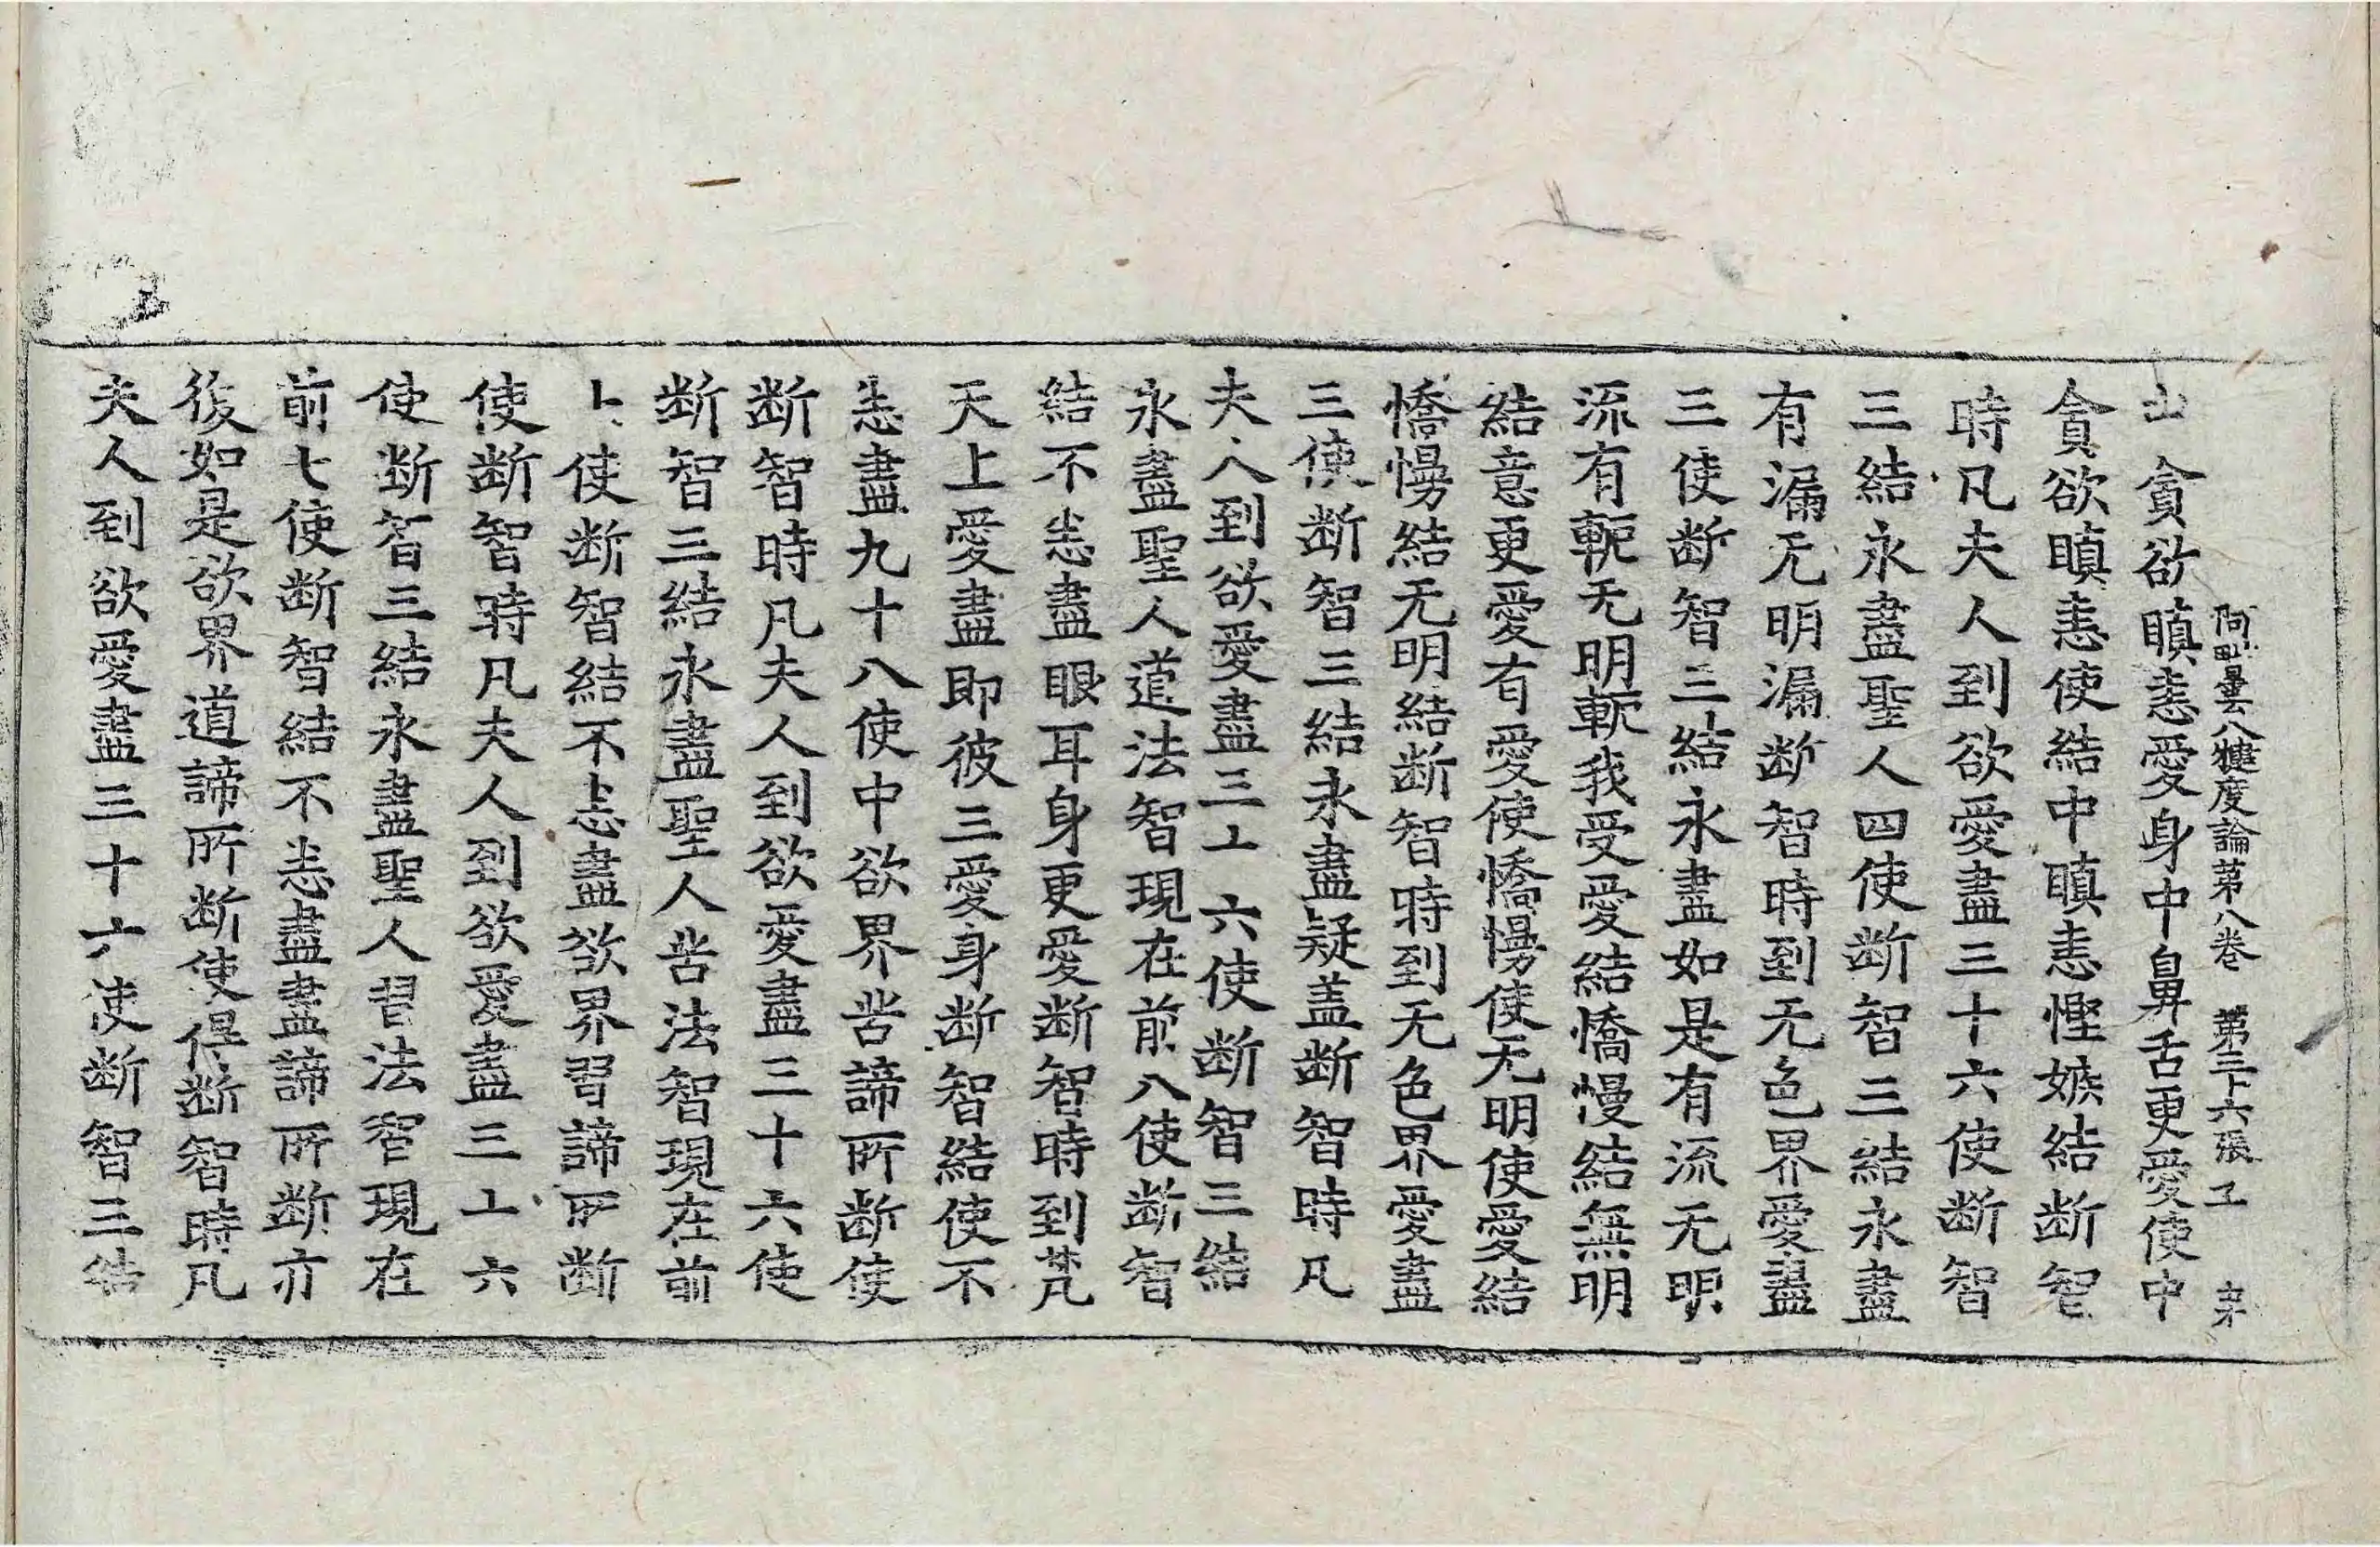 阿毗曇八犍度論第八卷 第三十六張
貪欲瞋恚愛身中鼻舌更愛使中
貪欲瞋恚使結中瞋恚慳嫉結断智
時凡夫人到欲愛盡三十六使断智
三結永盡聖人四使断智三結永盡
有漏无明漏断智時到无色界愛盡
三使断智三結永盡如是有流无明
流有軛无明軛我受愛結憍慢結無明
結意更愛有愛使憍慢使无明使愛結
憍慢結无明結断智時到无色界愛盡
三使断智三結永盡疑盖断智時凡
夫人到欲愛盡三十六使断智三結
永盡聖人道法智現在前八使断智
結不恙盡眼耳身更愛断智時到梵
天上愛盡即彼三愛身断智結使不
恙盡九十八使中欲界苦諦所断使
断智時凡夫人到欲愛盡三十六使
断智三結永盡聖人苦法智現在前
十使断智結不恙盡欲界習諦所断
使断智時凡夫人到欲愛盡三十六
使断智三結永盡聖人習法智現在
前七使断智結不恙盡盡諦所断亦
後如是欲界道諦所断使得断智時凡
夫人到欲愛盡三十六使断智三結